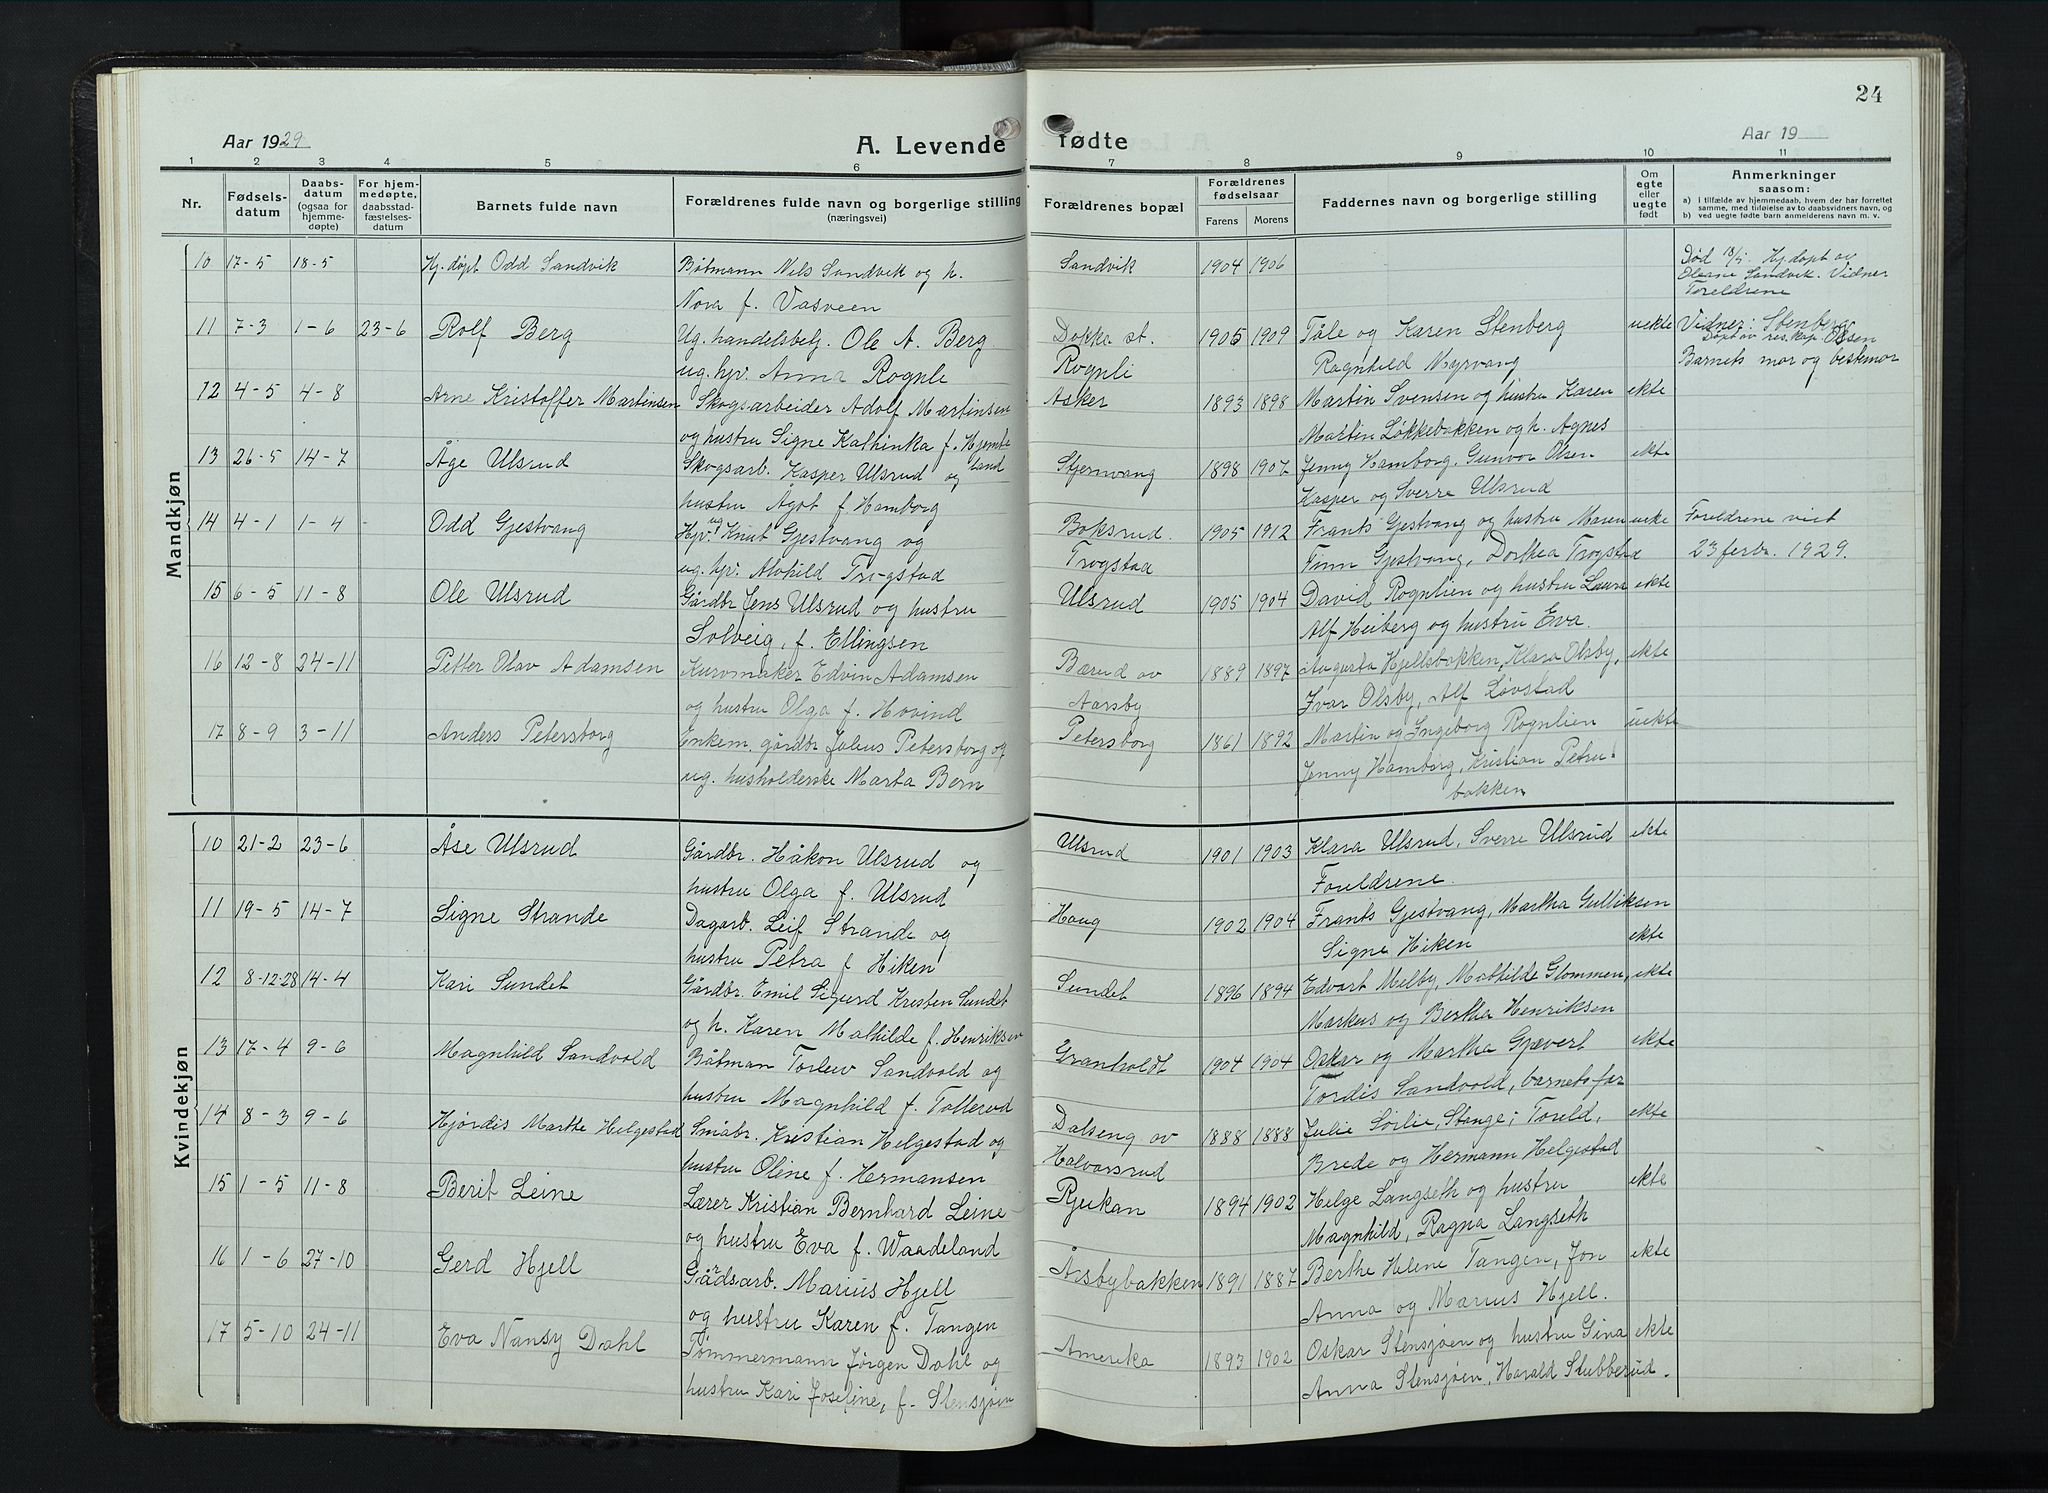 24
Aar 1929
A. Levende fødte
Aar 19
1 2 3 4 5 6 7 8 9 10 11
Nr.
Fødselsdatum
Daabsdatum (ogsaa for hjemmedøpte)
For hjemmedøpte, daabsstadfæstelsesdatum
Barnets fulde navn
Forældrenes fulde navn og borgerlige stilling (næringsvei)
Forældrenes bopæl
Forældrenes fødselsaar
Farens Morens
Faddernes navn og borgerlige stilling
Om egte eller uegte født
Anmerkninger saasom:
a) I tilfælde av hjemmedaab, hvem der har forrettet samme, med tilføielse av to daabsvidners navn, og
b) ved uegte fødte barn anmelderens navn m. v.
Mandkjøn
10 17-5 18-5 Hj.døpt Odd Sandvik Båtmann Nils Sandvik og h. Sandvik 1904 1906 Død 18/5. Hj.døpt av
Nora f. Vasveen Sandvik. Vidner
Foreldrene
11 7-3 1-6 23-6 Rolf Berg Ug. handelsbetj. Ole A. Berg Dokka st. 1905 1909 Tåle og Karen Stenberg uekte Vidner: Stenberg
Døpt av res.kap. Olsen
ug. hpv. Anna Rognli Rognli Ragnhild Nyrvang Barnets mor og bestemor
12 4-5 4-8 Arne Kristoffer Martinsen Skogsarbeider Adolf Martinsen Asker 1893 1898 Martin Svensen og hustru Karen ekte
og hustru Signe Kathinka f. Hjemte Martin Løkkebakken og h. Agnes
land
13 26-5 14-7 Åge Ulsrud Skogsarb. Kasper Ulsrud og Stjernvang 1898 1907 Jenny Hamborg, Gunvor Olsen ekte
hustru Ågot f. Hamborg Kasper og Sverre Ulsrud
14 4-1 1-4 - Odd Gjestvang Hjv. ug Knut Gjestvang og Boksrud. 1905 1912 Frants Gjestvang og hustru Maren ueke Foreldrene viet
ug. hpv. Alvhild Trogstad Trogstad Finn Gjestvang, Dorthea Trogstad 23 febr. 1929.
15 6-5 11-8 Ole Ulsrud Gårdbr Jens Ulsrud og hustru Ulsrud 1905 1904 David Rognlien og hustru Laura ekte
Solveig, f. Ellingsen Alf Heiberg og hustru Eva.
16 12-8 24-11 Petter Olav Adamsen Kurvmaker Edvin Adamsen Bærud av 1889 1897 Augusta Hjellsbakken, Klara Olsby, ekte
og hustru Olga f. Hovind Aarsby Ivar Olsby, Alf Løvstad
17 8-9 3-11 Anders Petersborg Enkem. gårdbr Julius Petersborg og Petersborg 1861 1892 Martin og Ingeborg Rognlien uekte
ug. husholderske Marta Bern Jenny Hamborg, Kristian Petru-
bakken
Kvindekjøn
10 21-2 23-6 Åse Ulsrud Gårdbr. Håkon Ulsrud og Ulsrud 1901 1903 Klara Ulsrud, Sverre Ulsrud ekte
hustru Olga f. Ulsrud Foreldrene.
11 19-5 14-7 Signe Strande Dagarb. Leif Strande og Haug 1902 1904 Frants Gjestvang, Martha Gulliksen
hustru Petra f Hiken Signe Hiken ekte
12 8-12-28 14-4 Kari Sundet Gårdbr. Emil Sigurd Kristen Sundet Sundet 1896 1894 Edvart Melby, Mathilde Glommen, ekte
og h. Karen Mathilde f. Henriksen Markus og Bertha Henriksen
13 17-4 9-6 Magnhild Sandvold Båtman Torleiv Sandvold og Granholdt 1904 1904 Oskar og Martha Gjævert ekte
hustru Magnhild f. Tollerud Tordis Sandvold, barnets far
14 8-3 9-6 Hjørdis Marthe Helgestad Småbr. Kristian Helgestad og Dalseng av 1888 1888 Julie Sørlie, Stange; Foreld, ekte
hustru Oline f. Hermansen Halvorsrud Brede og Hermann Helgestad
15 1-5 11-8 Berit Leine Lærer Kristian Bernhard Leine Rjukan 1894 1902 Helge Langseth og hustru ekte
og hustru Eva f. Waadeland Magnhild, Ragna Langseth
16 1-6 27-10 Gerd Hjell Gårdsarb. Marius Hjell Årsbybakken 1891 1887 Berthe Helene Tangen, Jon ekte
og hustru Karen f. Tangen Anna og Marius Hjell.
17 5-10 24-11 Eva Nansy Dahl Tømmermann Jørgen Dahl og Amerika 1893 1902 Oskar Stensjøen og hustru Gina ekte
hustru Kari Josefine, f. Stensjøen Anna Stensjøen, Harald Stubberud.